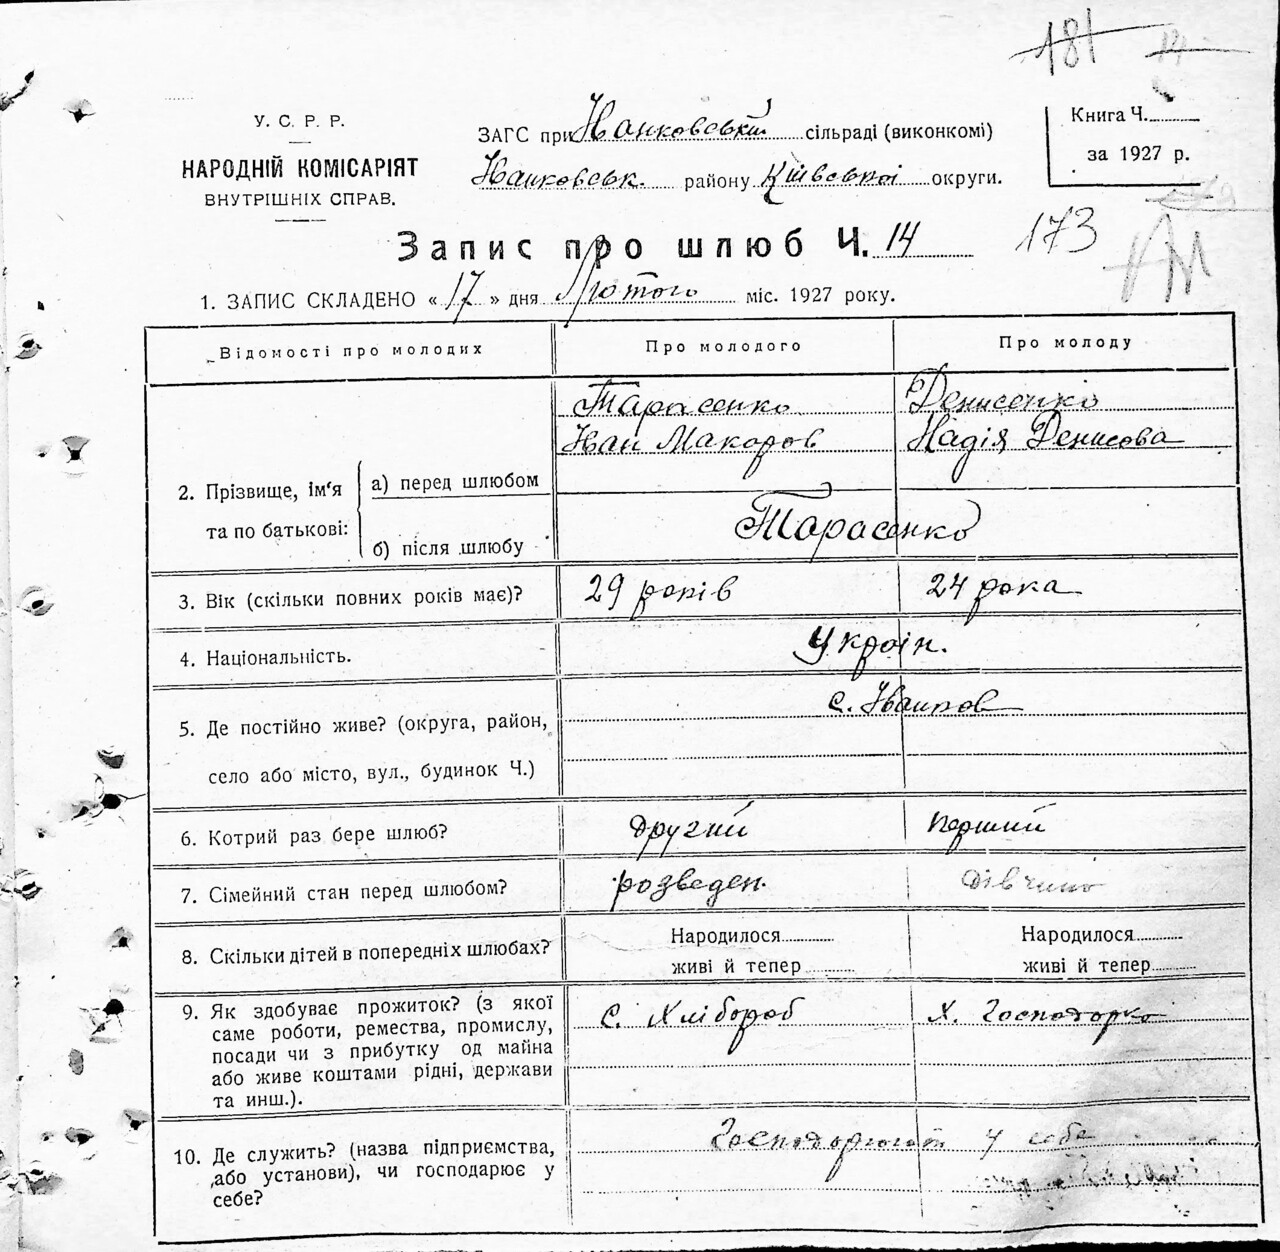 181 14
У. С. Р. Р.
НАРОДНІЙ КОМІСАРІЯТ
ВНУТРІШНІХ СПРАВ.
ЗАГС при Іванковській сільраді (виконкомі)
Іванковськ. району Київської округи.
Книга Ч.
за 1927 р.
Запис про шлюб Ч. 14
173
1. ЗАПИС СКЛАДЕНО « 17 » дня Лютого міс. 1927 року.
Відомості про молодих Про молодого Про молоду
Тарасенко Денисенко
Іван Макаров Надія Денисова
2. Прізвище, ім'я та по батькові: а) перед шлюбом
б) після шлюбу Тарасенко
3. Вік (скільки повних років має)? 29 років 24 рока
4. Національність. Україн.
5. Де постійно живе? (округа, район, с. Іванков
село або місто, вул., будинок Ч.)
6. Котрий раз бере шлюб? другий перший
7. Сімейний стан перед шлюбом? розведен. дівчина
8. Скільки дітей в попередніх шлюбах? Народилося Народилося
живі й тепер живі й тепер
9. Як здобуває прожиток? (з якої с. Хлібороб Х. Господарка
саме роботи, ремества, промислу,
посади чи з прибутку од майна
або живе коштами рідні, держави
та инш.).
10. Де служить? (назва підприємства, у себе
або установи), чи господарює у
себе?